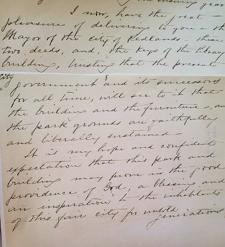 I now, have the great
pleasure of delivering to you - the
Mayor of the city of Redlands - these
two, deeds, and, the keys of the library
building, trusting that the present
city government and its successors
for all time, will see to it that
the building and the furniture, and
the park grounds are faithfully
and liberally sustained.
It is my hope and confident
expectation that this park and
building may prove in the good
providence of God, a blessing and
an inspiration to the inhabitants
of this fair city for untold
generations